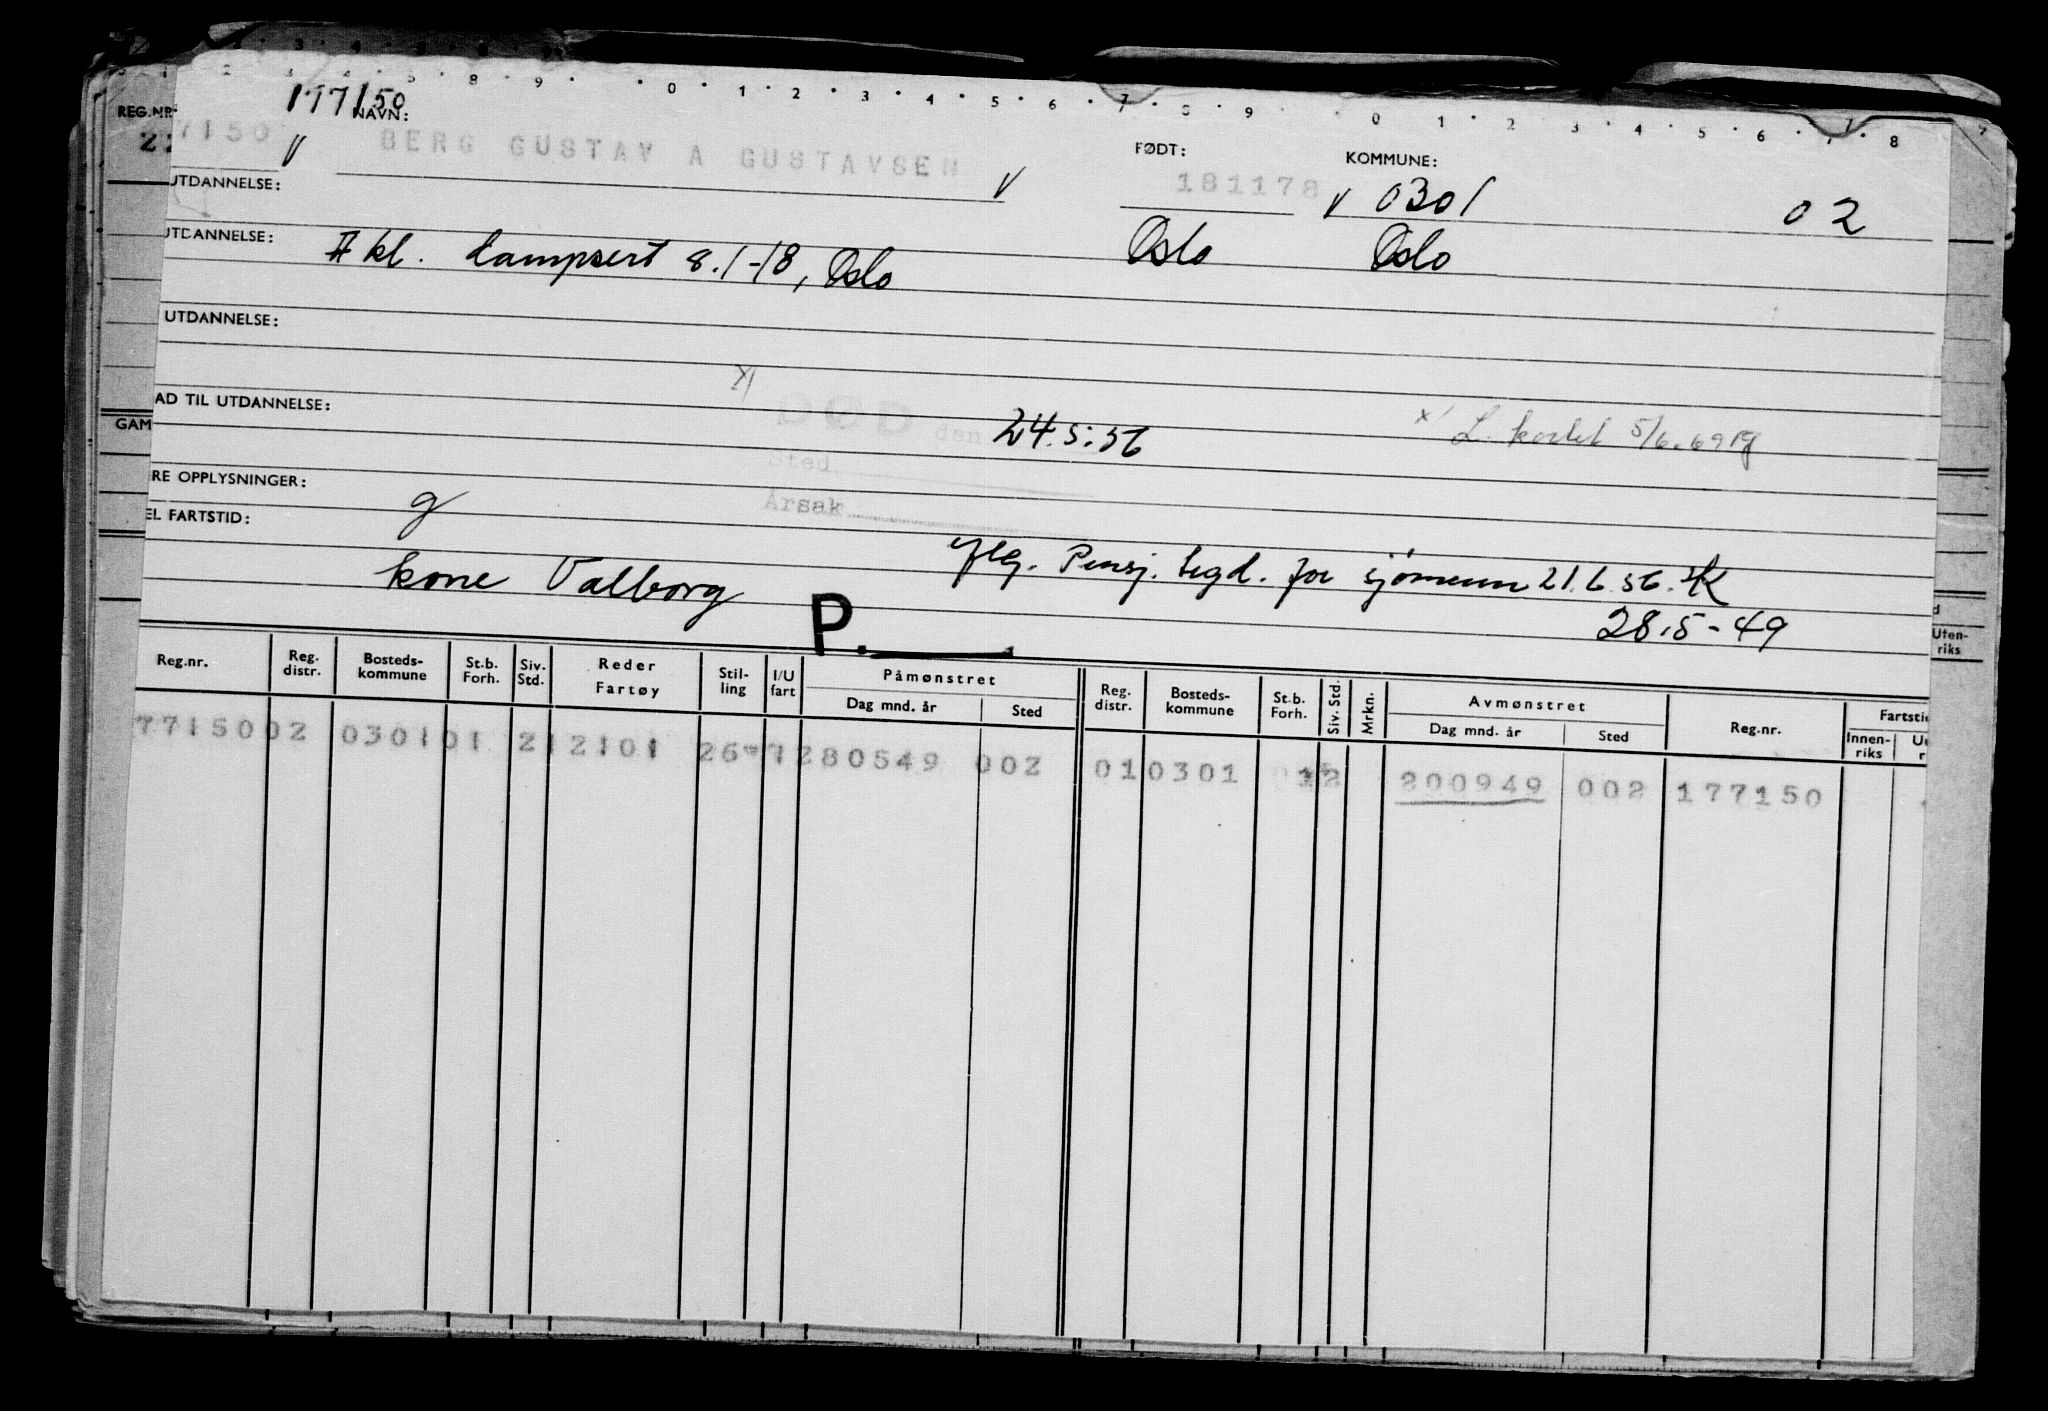 177150
REG.NR. NAVN:
7150 V BERG GUSTAV A GUSTAVSEN V FØDT: 181178 KOMMUNE: V 0301 02
UTDANNELSE:
UTDANNELSE: II kl. dampsert 8.1-18, Oslo Oslo Oslo
UTDANNELSE:
AD TIL UTDANNELSE:
GAM
x) DØD den 24.5.56
x) L. kortet 5/6.69
Sted
Årsak
RE OPPLYSNINGER: g
EL FARTSTID:
kone Valborg
iflg. Pensj. trygd. for sjömenn 21.6.56.
P. 28.5-49
Reg.nr. Reg. distr. Bosteds-kommune St.b. Forh. Siv. Std. Reder Fartøy Stil-ling I/U fart Påmønstret Dag mnd. år Sted Reg. distr. Bosteds-kommune St.b. Forh. Siv. Std. Mrkn. Avmønstret Dag mnd. år Sted Reg.nr. Fartstid Innen-riks Uten-riks
77150 02 0301 01 2 12101 26 1 280549 002 01 0301 12 200949 002 177150